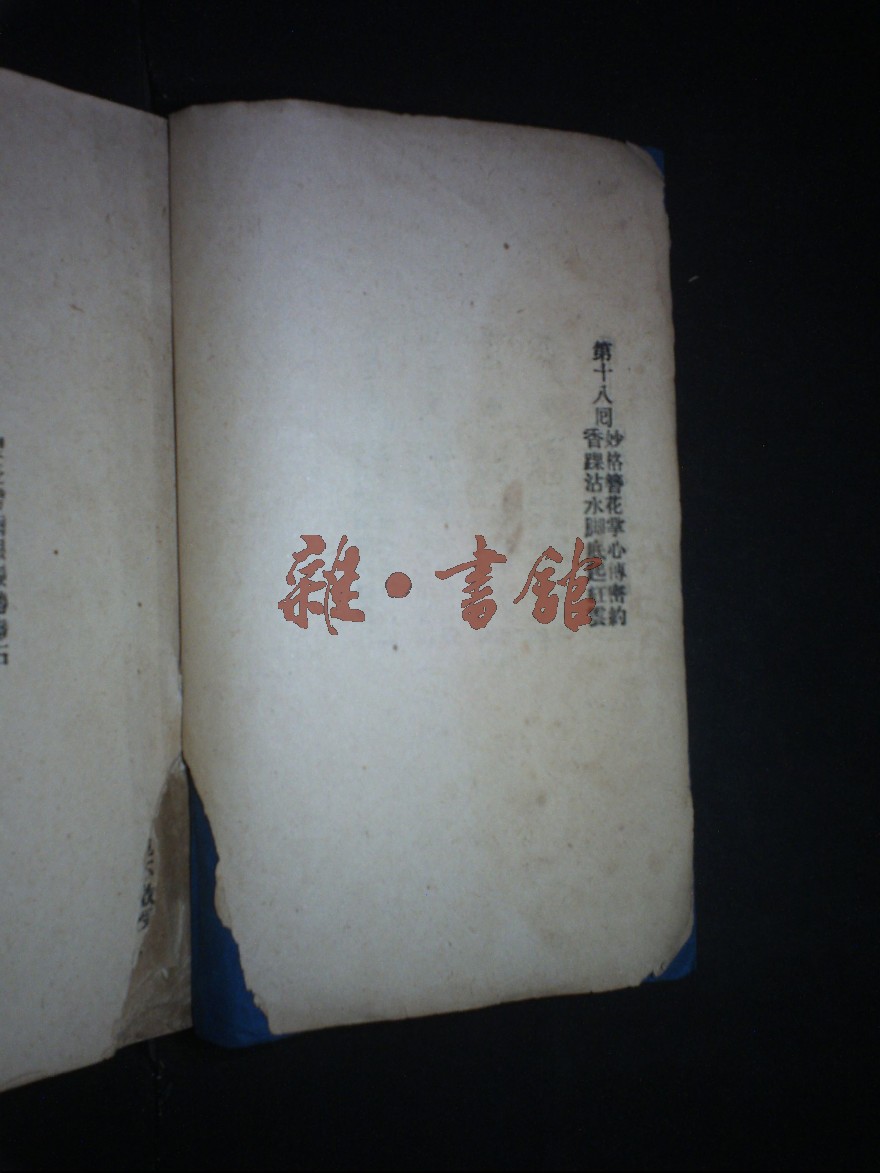 第十八回
妙格簪花掌心傳密約
香踝沾水腳底起紅雲
雜·書館